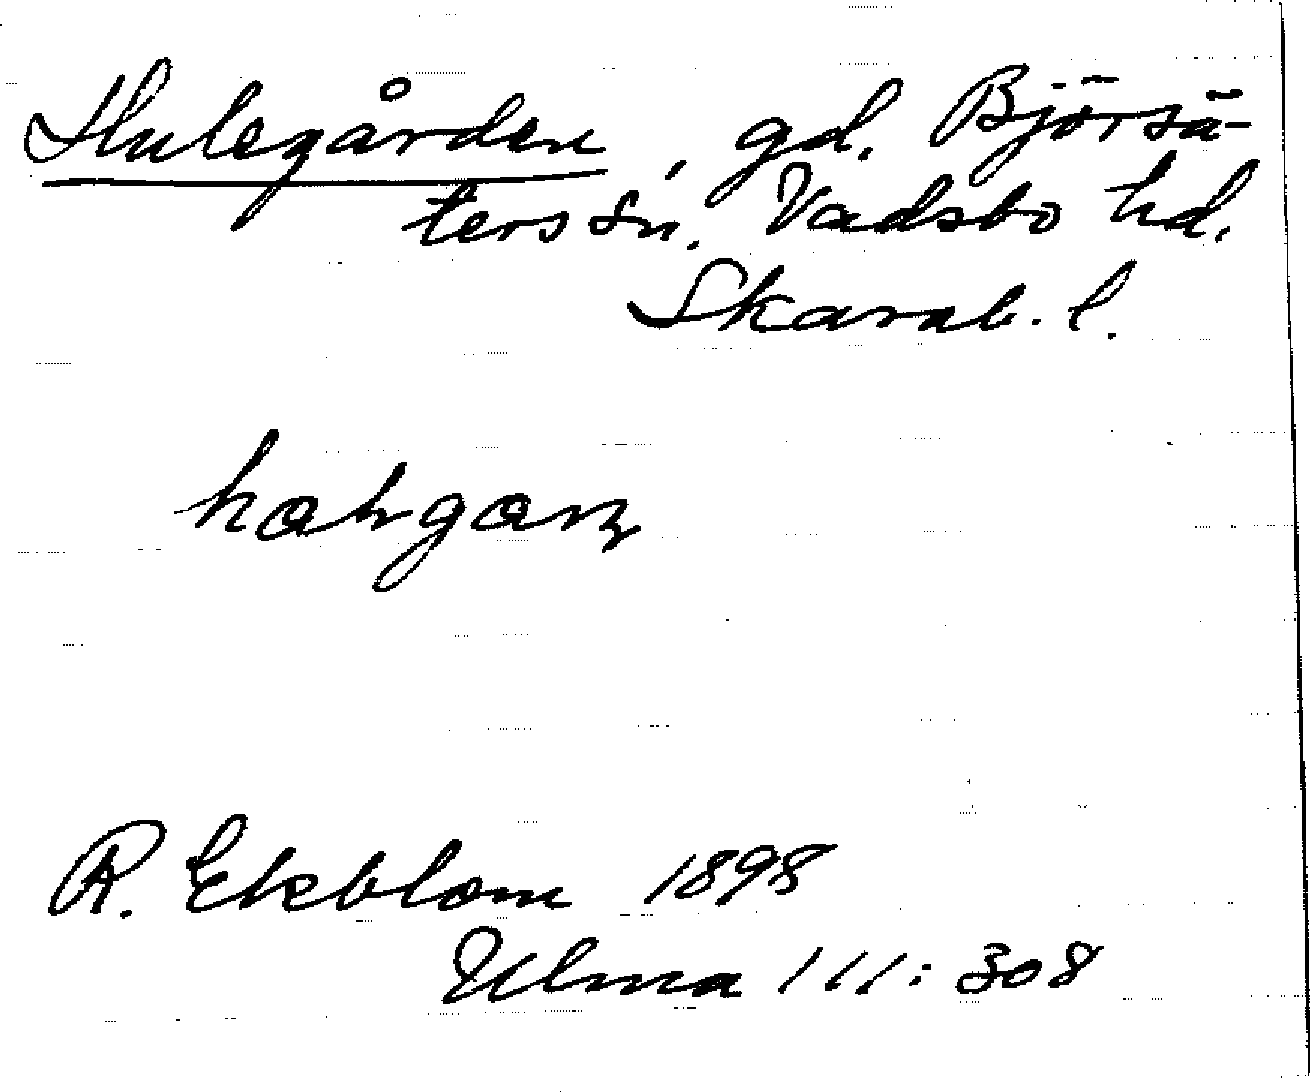 Hulegården, gd. Björsä-
ters sn. Vadsbo hd.
Skarab. l.
R. Ekblom 1898
Ulma 111:308